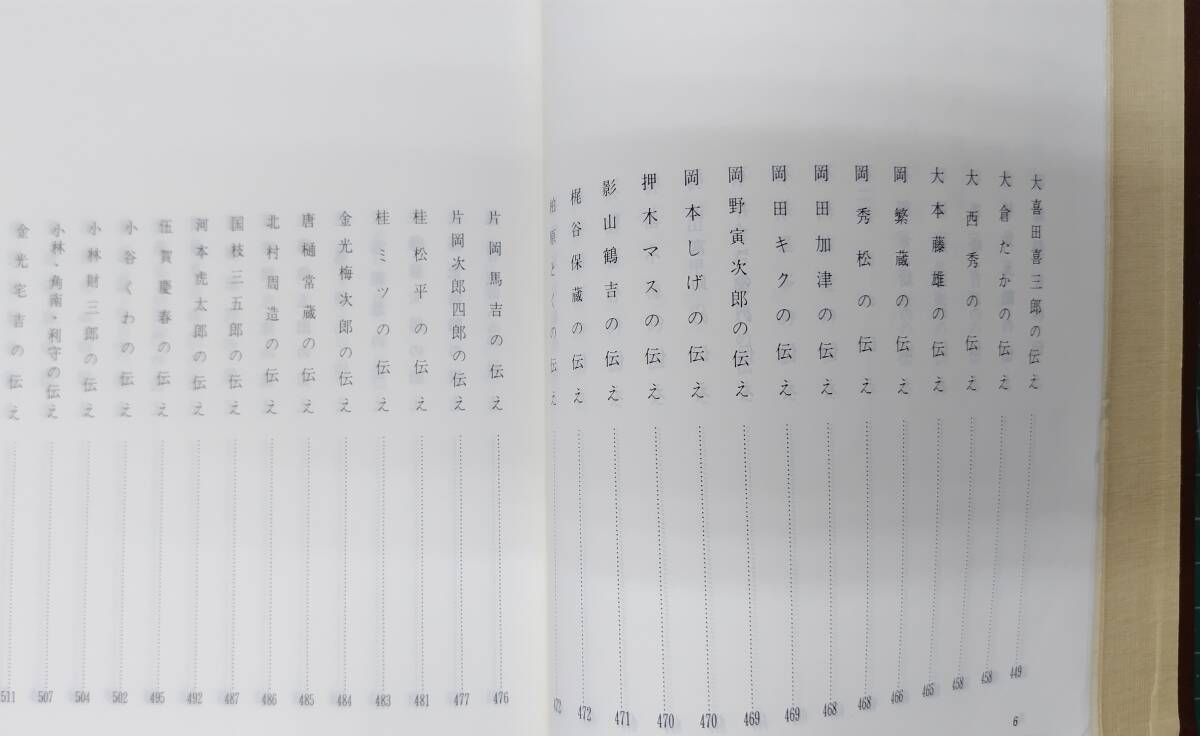 大喜田喜三郎の伝え……449
大倉たかの伝え……458
大西秀の伝え……458
大本藤雄の伝え……465
岡繁蔵の伝え……466
岡秀松の伝え……468
岡田加津の伝え……468
岡田キクの伝え……469
岡野寅次郎の伝え……469
岡本しげの伝え……470
押木マスの伝え……470
影山鶴吉の伝え……471
梶谷保蔵の伝え……472
柏原とくの伝え……472
6
片岡馬吉の伝え……476
片岡次郎四郎の伝え……477
桂松平の伝え……481
桂ミツの伝え……483
金光梅次郎の伝え……484
唐樋常蔵の伝え……485
北村周造の伝え……486
国枝三五郎の伝え……487
河本虎太郎の伝え……492
伍賀慶春の伝え……495
小谷くわの伝え……502
小林財三郎の伝え……504
小林・角南・利守の伝え……507
金光宅吉の伝え……511